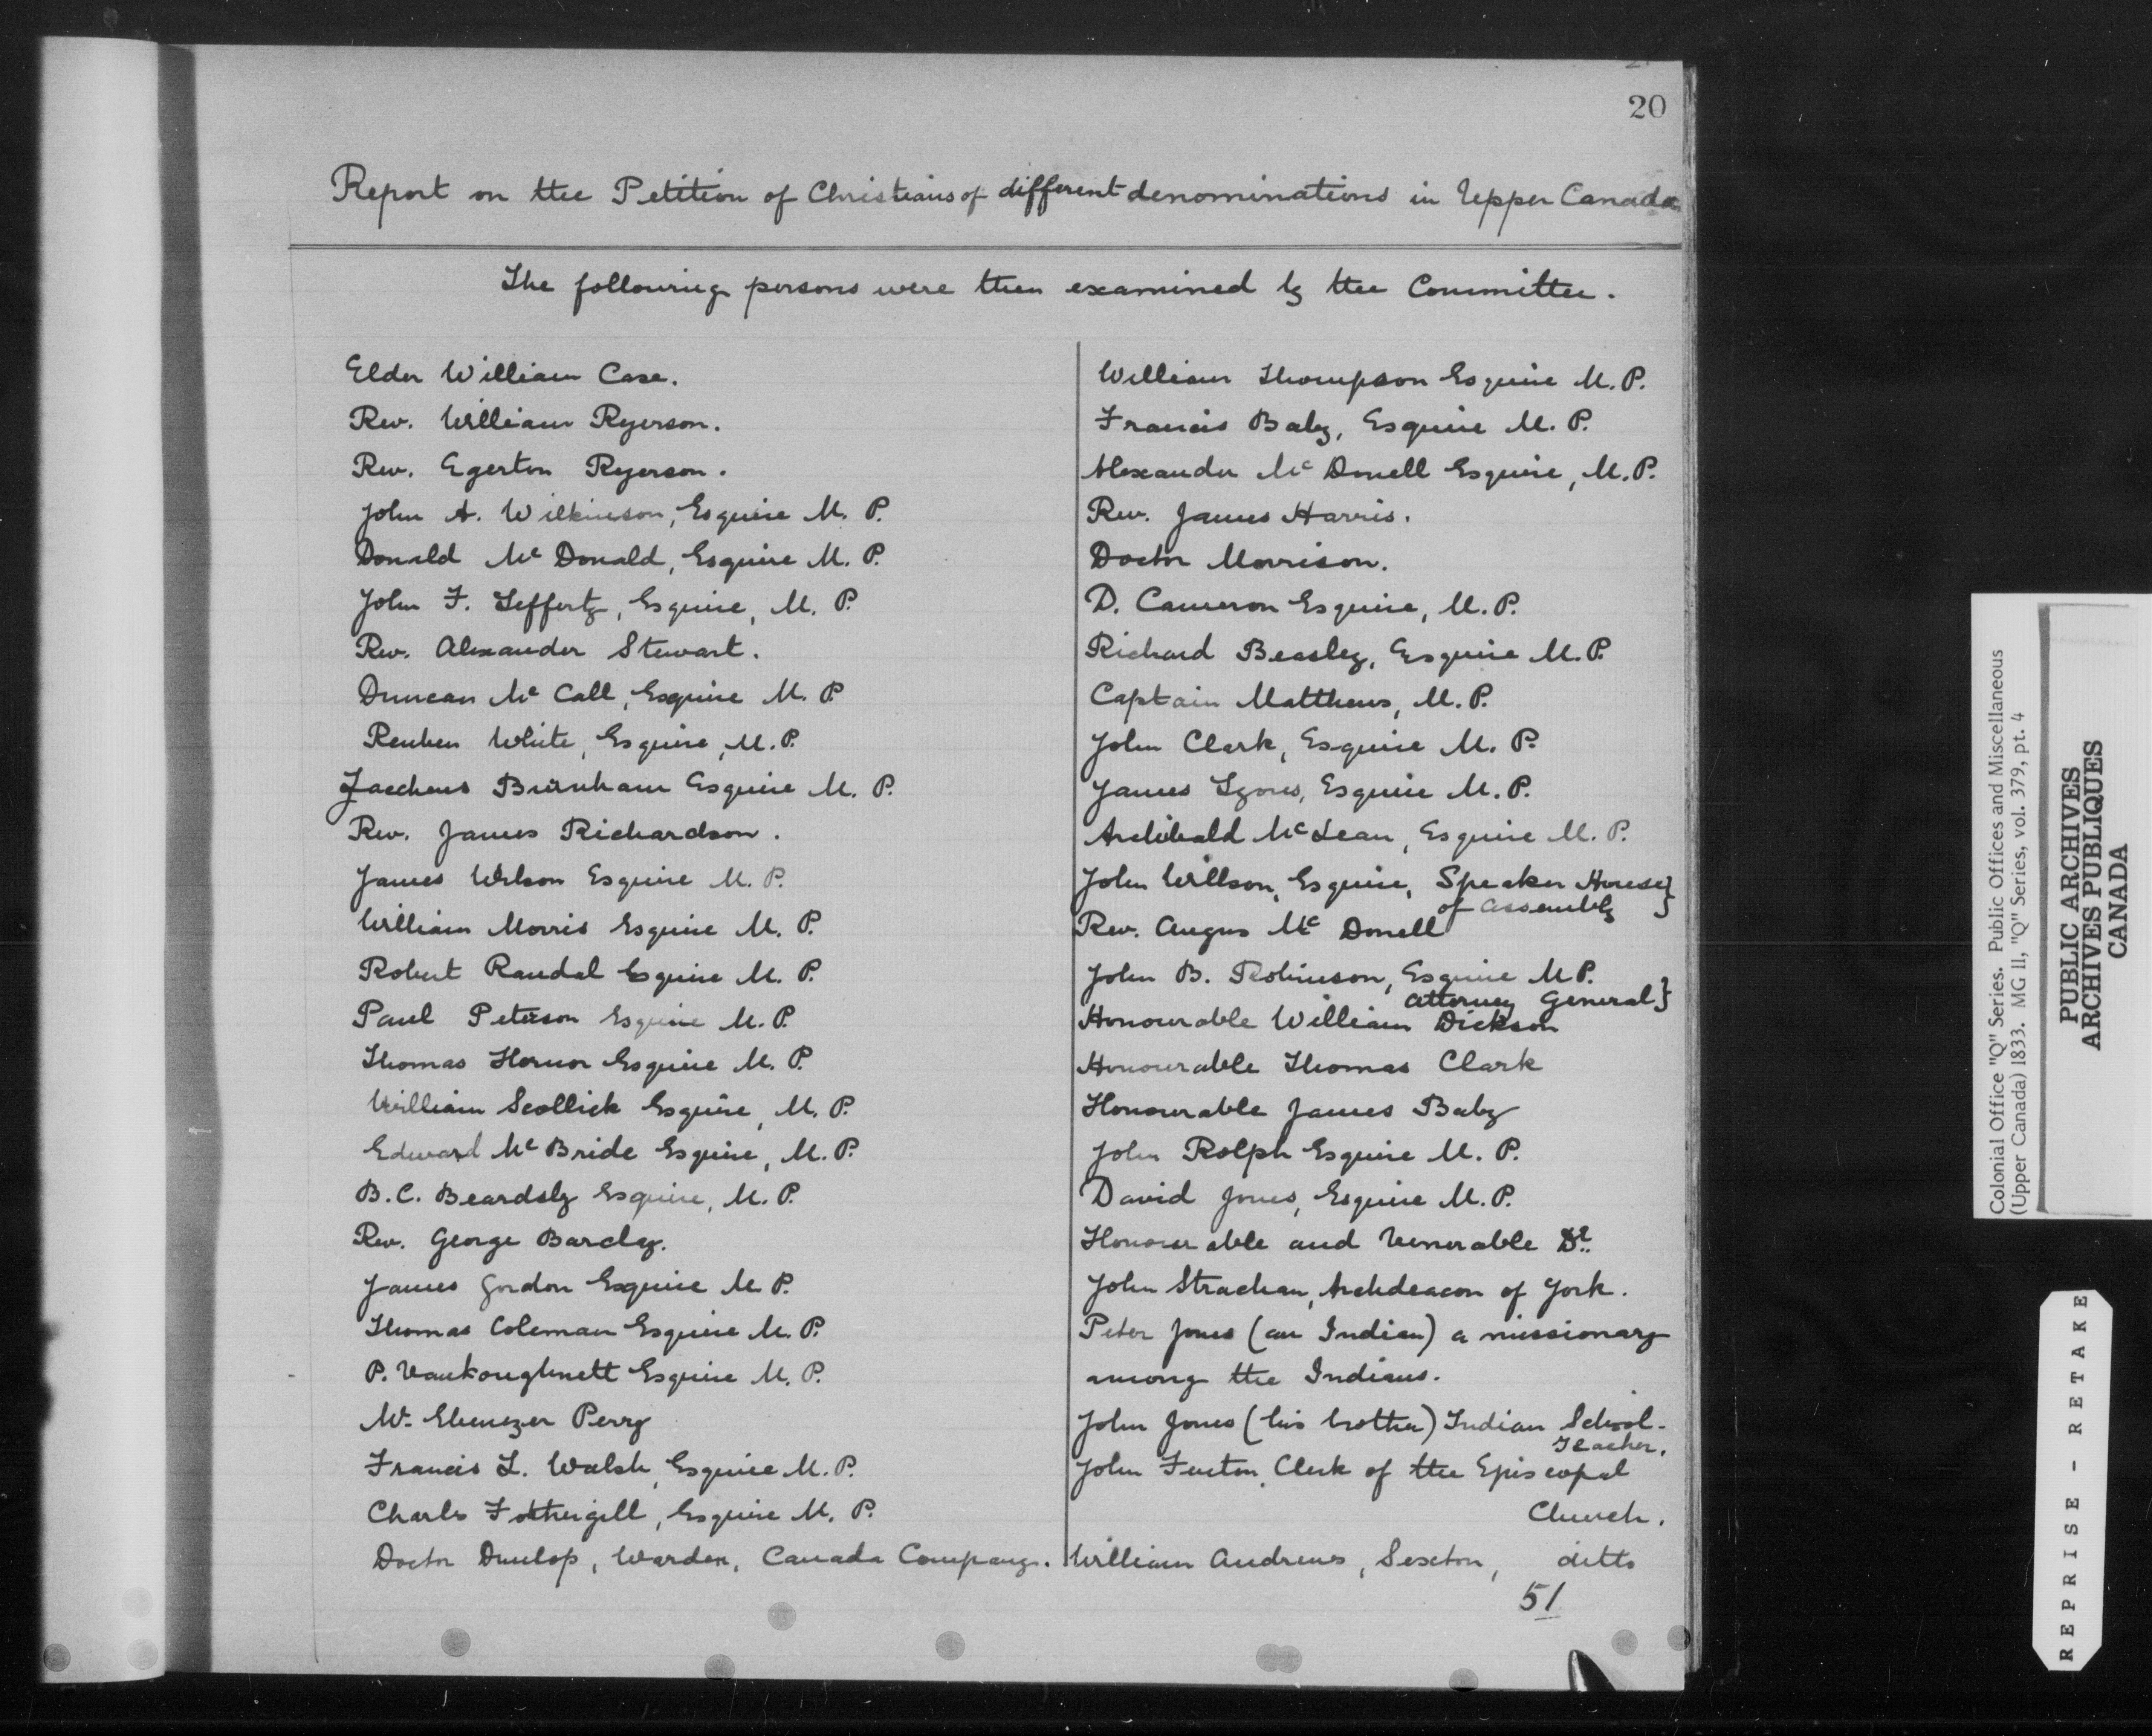 20
Report on the Petition of Christians of different denominations in Upper Canada
The following persons were then examined by the Committee.
Elder William Case.
Rev. William Ryerson.
Rev. Egerton Ryerson.
John A. Wilkinson, Esquire M. P.
Donald Mc Donald, Esquire M. P.
John F. Teffertz, Esquire, M. P.
Rev. Alexander Stewart.
Duncan Mc Call, Esquire M. P
Reuben White, Esquire, M. P.
Zaccheus Burnham Esquire M. P.
Rev. James Richardson.
James Wilson Esquire M. P.
William Morris Esquire M. P.
Robert Randal Esquire M. P.
Paul Peterson Esquire M. P.
Thomas Hornor Esquire M. P.
William Scollick Esquire, M. P.
Edward Mc Bride Esquire, M. P.
B. C. Beardsly Esquire, M. P.
Rev. George Barcley.
James Gordon Esquire M P.
Thomas Coleman Esquire M. P.
P. Vankoughnett Esquire M. P.
Mr. Ebenezer Perry
Francis L. Walsh, Esquire M. P.
Charles Fothergill, Esquire M. P.
Doctor Dunlop, Warden, Canada Company.
William Thompson Esquire M. P.
Francis Baby, Esquire M. P.
Alexander Mc Donell Esquire, M. P.
Rev. James Harris.
Doctor Morrison.
D. Cameron Esquire, M. P.
Richard Beasley, Esquire M. P.
Captain Matthews, M. P.
John Clark, Esquire M. P.
James Lyons, Esquire M. P.
Archibald McLean, Esquire M. P.
John Willson, Esquire, Speaker House}
of Assembly
Rev. Angus Mc Donell
John B. Robinson, Esquire M P.
Attorney General}
Honourable William Dickson
Honourable Thomas Clark
Honourable James Baby
John Rolph Esquire M. P.
David Jones, Esquire M. P.
Honourable and Venerable Dr.
John Strachan, Archdeacon of York.
Peter Jones (an Indian) a missionary
among the Indians.
John Jones (his brother) Indian School-
Teacher.
John Fenton, Clerk of the Episcopal
Church.
William Andrews, Sexton, ditto
51
Colonial Office "Q" Series. Public Offices and Miscellaneous
(Upper Canada) 1833. MG 11, "Q" Series, vol. 379, pt. 4
PUBLIC ARCHIVES
ARCHIVES PUBLIQUES
CANADA
REPRISE - RETAKE